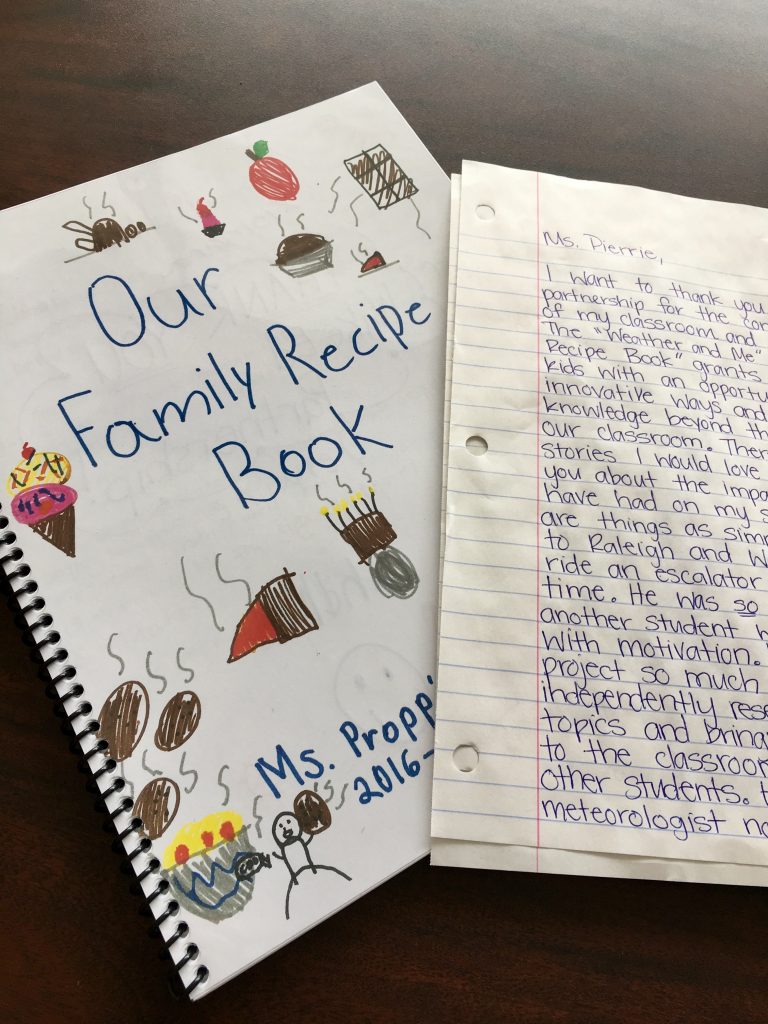 Our
Family Recipe
Book
Ms. Propp
2016-
Ms. Pierrie,
I want to thank you
partnership for the
of my classroom and
The "Weather and Me"
Recipe Book" grants
kids with an
innovative ways and
knowledge beyond
our classroom.
stories I would love
you about the
have had on my
are things as
to Raleigh and
ride an escalator
time. He was so
another student
with motivation.
project so much
independently
topics and
to the classroom
other students.
meteorologist